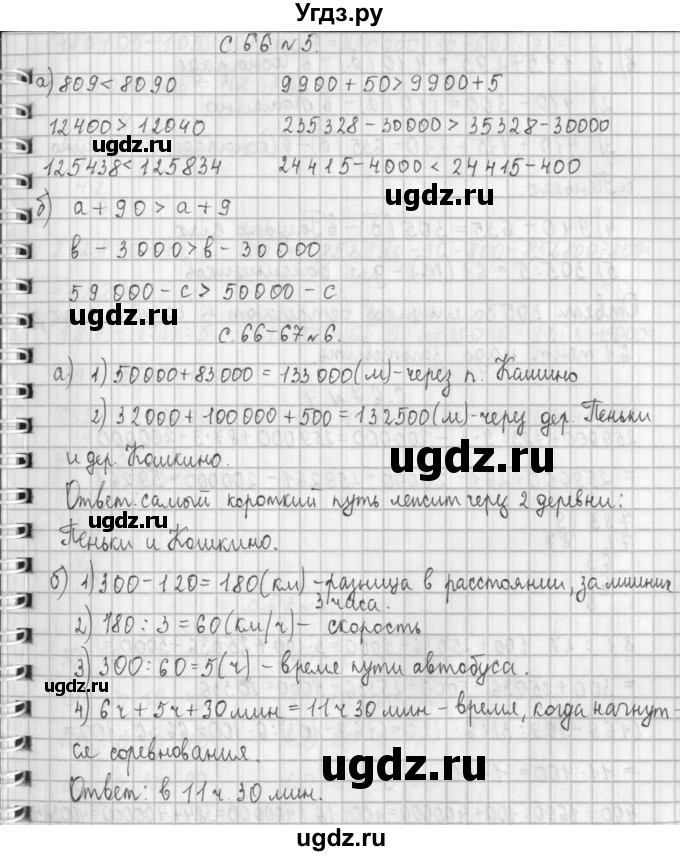 Угдз.ру
С. 66 № 5.
а) 809 < 8090 9900 + 50 > 9900 + 5
12400 > 12040 235328 - 30000 > 35328 - 30000
ugdz.ru
125438 < 125834 24415 - 4000 < 24415 - 400
ugdz.ru
б) а + 90 > а + 9
в - 3000 > в - 30000
59000 - с > 50000 - с
ugdz.ru
С. 66-67 № 6.
ugdz.ru
а) 1) 50000 + 83000 = 133000 (м) - через п. Кашино
2) 32000 + 100000 + 500 = 132500 (м) - через дер. Пеньки
и дер. Кошкино.
ugdz.ru
Ответ: самый короткий путь лежит через 2 деревни:
ugdz.ru
Пеньки и Кошкино.
б) 1) 300 - 120 = 180 (км) - разница в расстоянии, за лишних
3 часа.
2) 180 : 3 = 60 (км/ч) - скорость
3) 300 : 60 = 5 (ч) - время пути автобуса.
ugdz.ru
4) 6 ч + 5 ч + 30 мин = 11 ч 30 мин - время, когда начнут-
ся соревнования.
ugdz.ru
Ответ: в 11 ч. 30 мин.
ugdz.ru